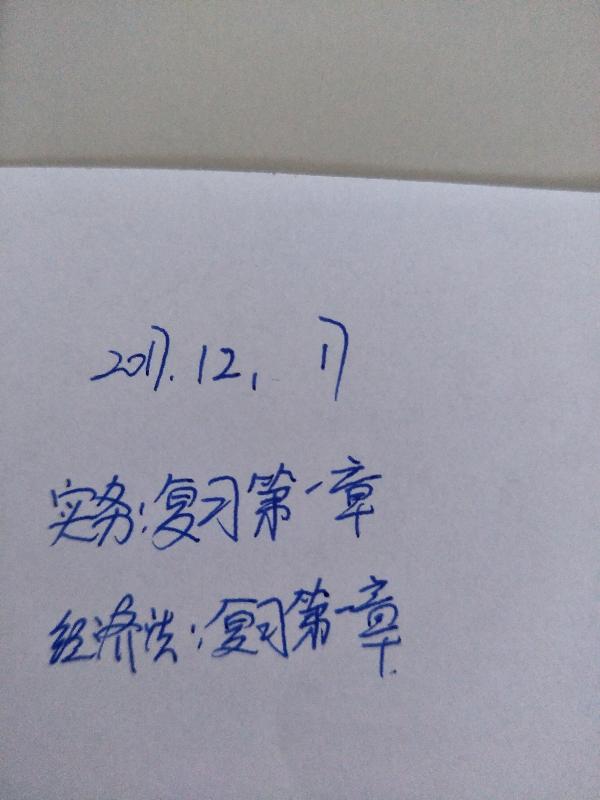 2017.12. 17
实务:复习第一章
经济法:复习第一章